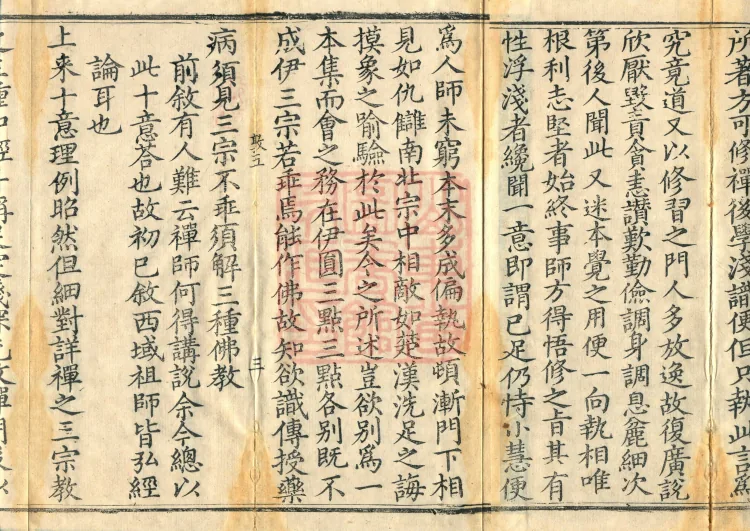 所著方可修禪後學淺識便但只執此言爲
究竟道又以修習之門人多放逸故復廣說
欣厭毀責貪恚讚歎勤儉調身調息麁細次
第後人聞此又迷本覺之用便一向執相唯
根利志堅者始終事師方得悟修之旨其有
性浮淺者纔聞一意即謂已足仍恃小慧便
爲人師未窮本末多成偏執故頓漸門下相
見如仇讎南北宗中相敵如楚漢洗足之誨
摸象之喻驗於此矣今之所述豈欲別爲一
本集而會之務在伊圓三點三點各別既不
成伊三宗若乖焉能作佛故知欲識傳授藥
病須見三宗不乖須解三種佛教
前敘有人難云禪師何得講說余今總以
此十意荅也故初已敘西域祖師皆弘經
論耳也
上来十意理例昭然但細對詳禪之三宗教
三